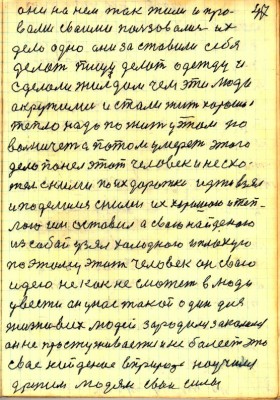 они на нем так жили и про- 47
вали своими пользовали их
дело одно они заставили себя
делат пищу делат одежду и
сделали жилдом чем эти люди
окружими и стали жит хорошо и
тепло надо пожит утом по
величега потом умерет этого
дело понел этот человек и несхо-
тел сними по их дорожке идти взял
и поделился сними их хорошою и теп-
лою им оставил а свою найденою
из собой узял холодного и плохую
поэтому этот человек он свою
идею не как не сможет в люди
увести он у нас такой один для
жизнивих людей зародим законом
он не простуживается и не болеет это
свое найденое в природе научился
другим людям свои силы